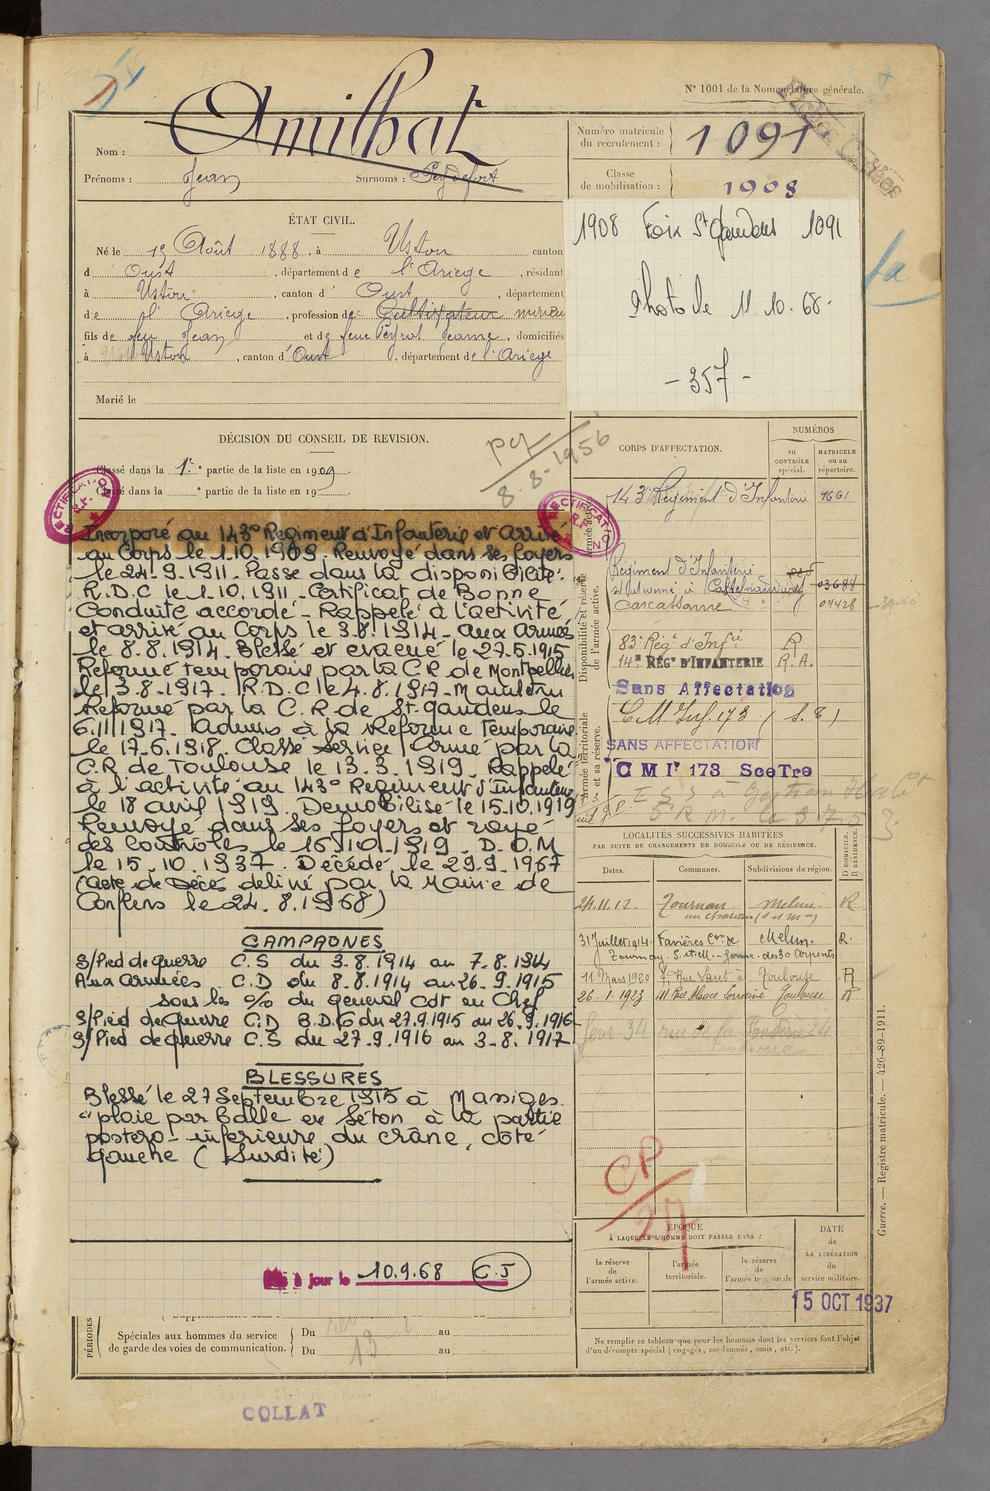 N° 1001 de la Nomenclature générale.
Nom : Amilhat
Prénoms : Jean Surnoms :
Numéro matricule du recrutement : 1091
Classe de mobilisation : 1908
1908 Foix St Gaudens 1091
Photo le 11.10.68.
- 357 -
ÉTAT CIVIL.
Né le 19 Août 1888, à Ustou canton
d Oust, département de l'Ariège, résidant
à Ustou, canton d' Oust, département
de l' Ariège, profession de Cultivateur mineur
fils de feu Jean et de feue Peyrot Jeanne, domiciliés
à Ustou, canton d'Oust, département de l'Ariège
Marié le
DÉCISION DU CONSEIL DE REVISION.
Classé dans la 1re partie de la liste en 1909.
Classé dans la partie de la liste en 19
8-8-1956
RECTIFICATION R.F.
RECTIFICATION R.F.
Incorporé au 143e Regiment d'Infanterie et Arrivé
au Corps le 1.10.1909. Renvoyé dans ses foyers
le 24.9.1911. Passé dans la disponibilité.
R.D.C le 1.10.1911. Certificat de Bonne
Conduite accordé. Rappelé à l'activité
et arrivé au Corps le 3.8.1914. Aux Armées
le 8.8.1914. Blessé et évacué le 27.5.1915
Reformé temporaire par la C.R de Montpellier
le 3.8.1917. R.D.C le 4.8.1917. Maintenu
Reformé par la C.R de St. gaudens le
6.11.1917. Admis à la Réforme Temporaire
le 17.6.1918. Classé Service Armé par la
C.R de Toulouse le 13.3.1919. Rappelé
à l'activité au 143e Regiment d'Infanterie
le 18 avril 1919. Demobilisé le 15.10.1919
Renvoyé dans ses foyers et rayé
des Contrôles le 16.10.1919. D.O.M
le 15.10.1937. Décédé le 29.9.1967
(acte de Décé delivré par la Mairie de
Conflens le 24.8.1968)
CAMPAGNES
S/Pied de guerre C.S du 3.8.1914 au 7.8.1914
Aux armées C.D du 8.8.1914 au 26.9.1915
sous les o/o du general Cdt en Chef
S/Pied de guerre C.D B.D.G du 27.9.1915 au 26.9.1916
S/Pied de guerre C.S du 27.9.1916 au 3.8.1917
BLESSURES
Blessé le 27 Septembre 1915 à Massiges.
"plaie par balle en séton à la partie
postero-inferieure du crâne, coté
gauche (Surdité)
à jour le 10.9.68 C.J
PÉRIODES
Spéciales aux hommes du service
de garde des voies de communication.
Du au
Du 19 au
COLLAT
CORPS D'AFFECTATION.
NUMÉROS
au CONTRÔLE spécial.
MATRICULE ou au répertoire.
143e Régiment d'Infanterie 4661
Disponibilité et réserve de l'armée active.
Régiment d'Infanterie
stationné à Castelnaudary 03688
Carcassonne 04428
83e Régt d'Infie R
14e RÉGt D'INFANTERIE R.A.
Sans Affectation
Armée territoriale et sa réserve.
C.M. Inf. 173 (S.T)
SANS AFFECTATION
C M Ie 173 SceTre
LOCALITÉS SUCCESSIVES HABITÉES
PAR SUITE DE CHANGEMENTS DE DOMICILE OU DE RÉSIDENCE.
Dates. Communes. Subdivisions de région. D DOMICILE. R RÉSIDENCE.
24.11.12 Tournan Melun R
31 Juillet 1914. Favières Con de Melun. R.
Tournan. S.et M. ferme des 30 Arpents
11 Mars 1920 Toulouse R
26.1.1923 41 Rue Alsace Lorraine Toulouse R
CP
27
ÉPOQUE
À LAQUELLE L'HOMME DOIT PASSER DANS :
la réserve de l'armée active.
l'armée territoriale.
la réserve de l'armée territoriale
DATE de LA LIBÉRATION du service militaire.
15 OCT 1937
Ne remplir ce tableau que pour les hommes dont les services font l'objet
d'un décompte spécial (engagés, condamnés, omis, etc.).
Guerre. — Registre matricule. — 426-89-1911.